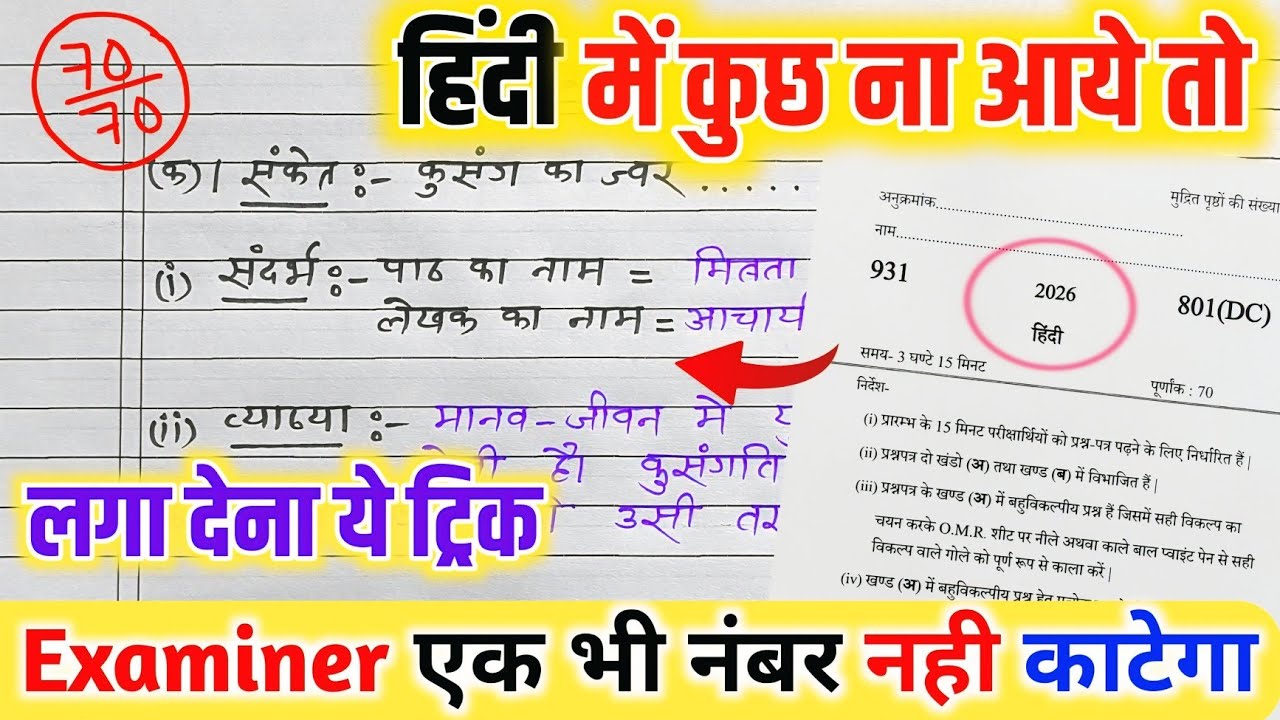 हिंदी में कुछ ना आये तो
70
70
(क)। संकेत :- कुसंग का ज्वर .....
(i) संदर्भ :- पाठ का नाम = मित्रता
लेखक का नाम = आचार्य
(ii) व्याख्या :- मानव-जीवन में
है। कुसंगति
उसी तर
लगा देना ये ट्रिक
अनुक्रमांक........................................
मुद्रित पृष्ठों की संख्या
नाम........................................
931
2026
801(DC)
हिंदी
समय- 3 घण्टे 15 मिनट
पूर्णांक : 70
निर्देश-
(i) प्रारम्भ के 15 मिनट परीक्षार्थियों को प्रश्न-पत्र पढ़ने के लिए निर्धारित हैं |
(ii) प्रश्नपत्र दो खंडो (अ) तथा खण्ड (ब) में विभाजित हैं |
(iii) प्रश्नपत्र के खण्ड (अ) में बहुविकल्पीय प्रश्न हैं जिसमें सही विकल्प का
चयन करके O.M.R. शीट पर नीले अथवा काले बाल प्वाइंट पेन से सही
विकल्प वाले गोले को पूर्ण रूप से काला करें |
(iv) खण्ड (अ) में बहुविकल्पीय प्रश्न हेतु
Examiner एक भी नंबर नही काटेगा